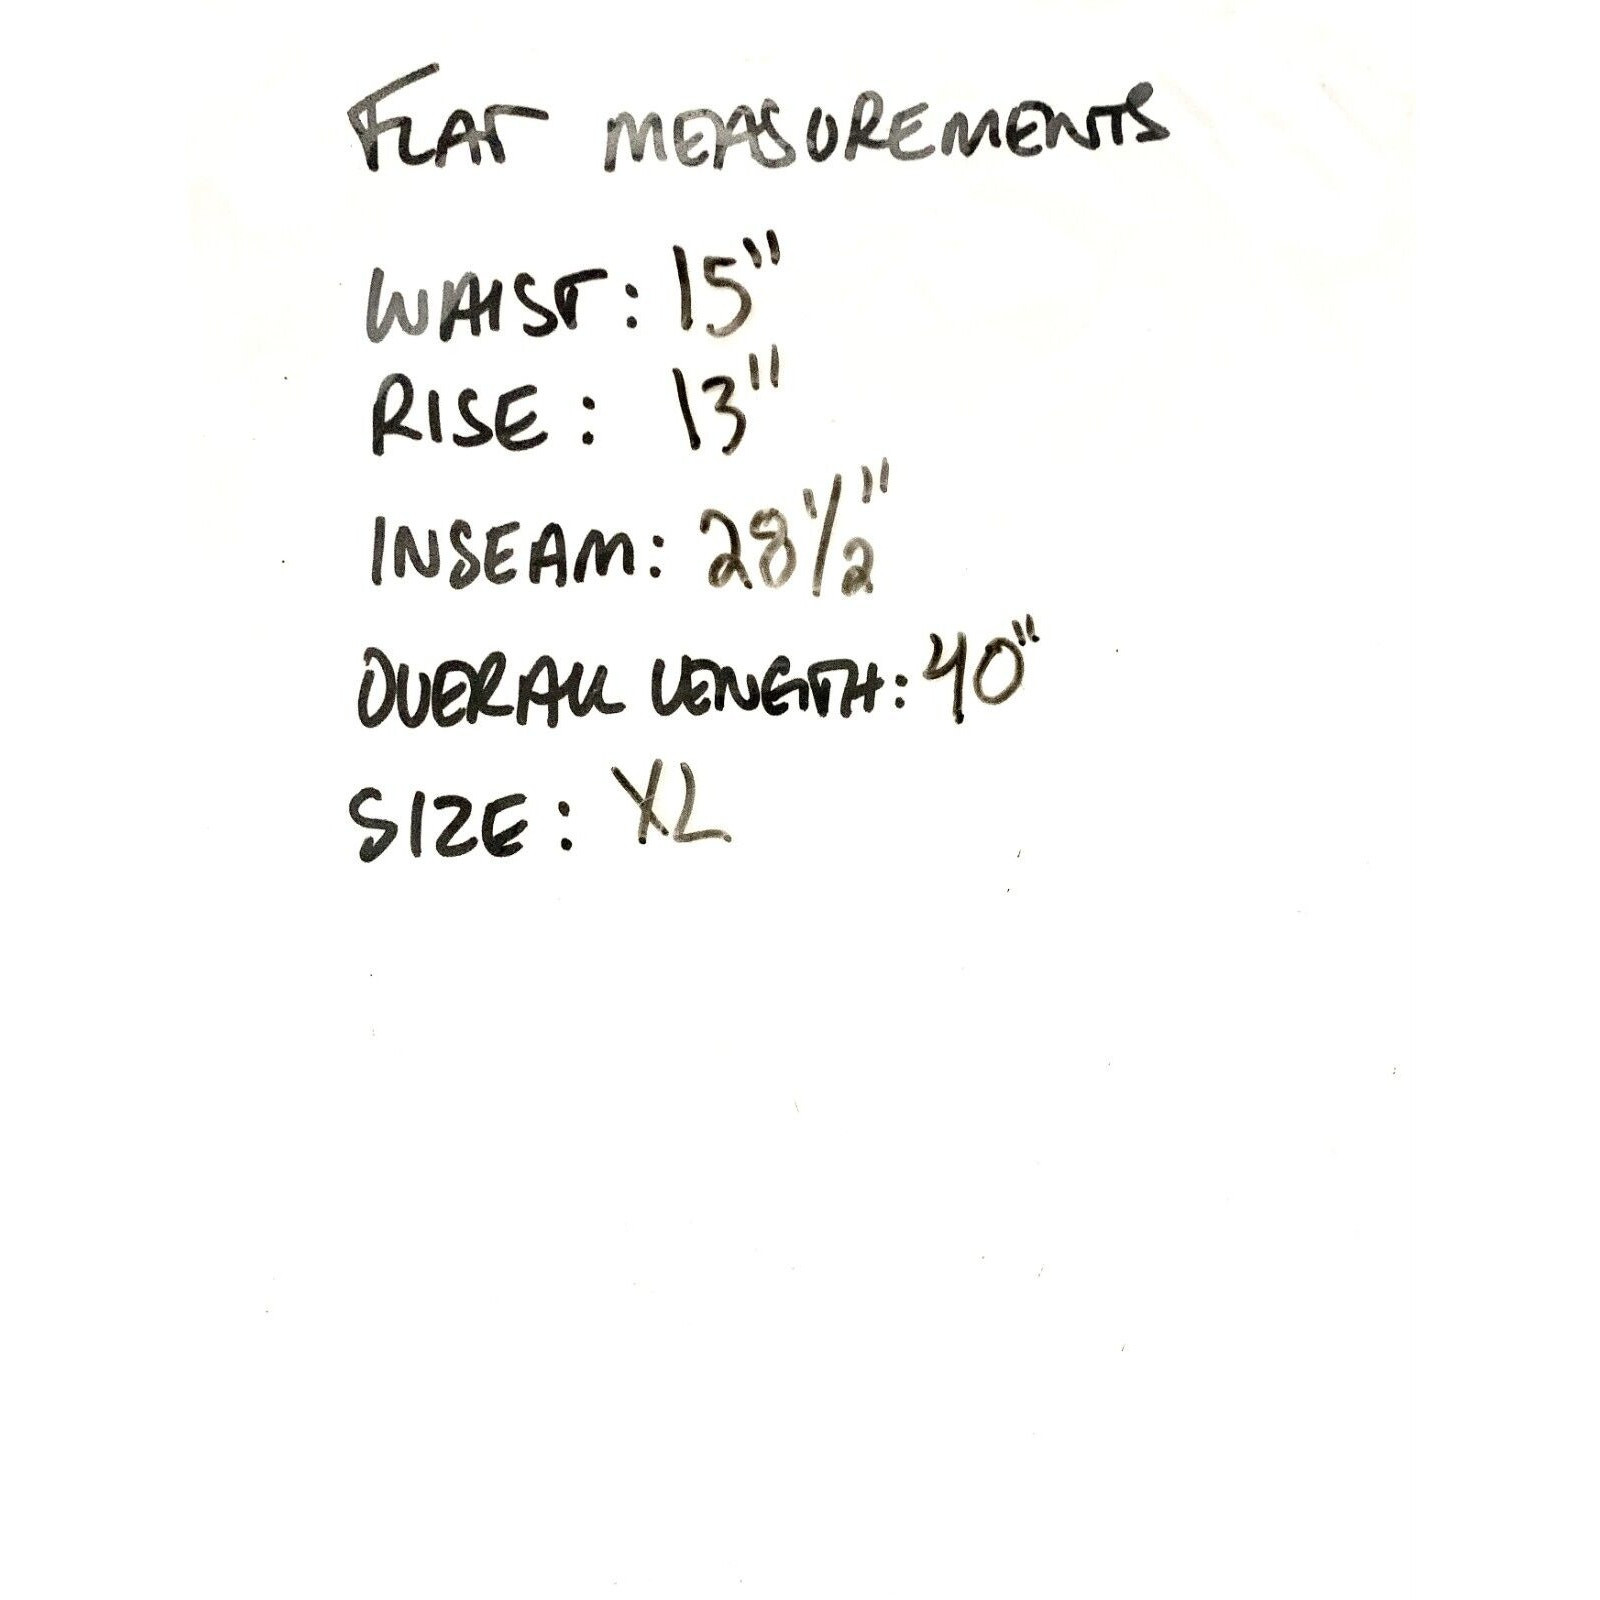 FLAT MEASUREMENTS
WAIST: 15"
RISE: 13"
INSEAM: 28 1/2"
OVERALL LENGTH: 40"
SIZE: XL